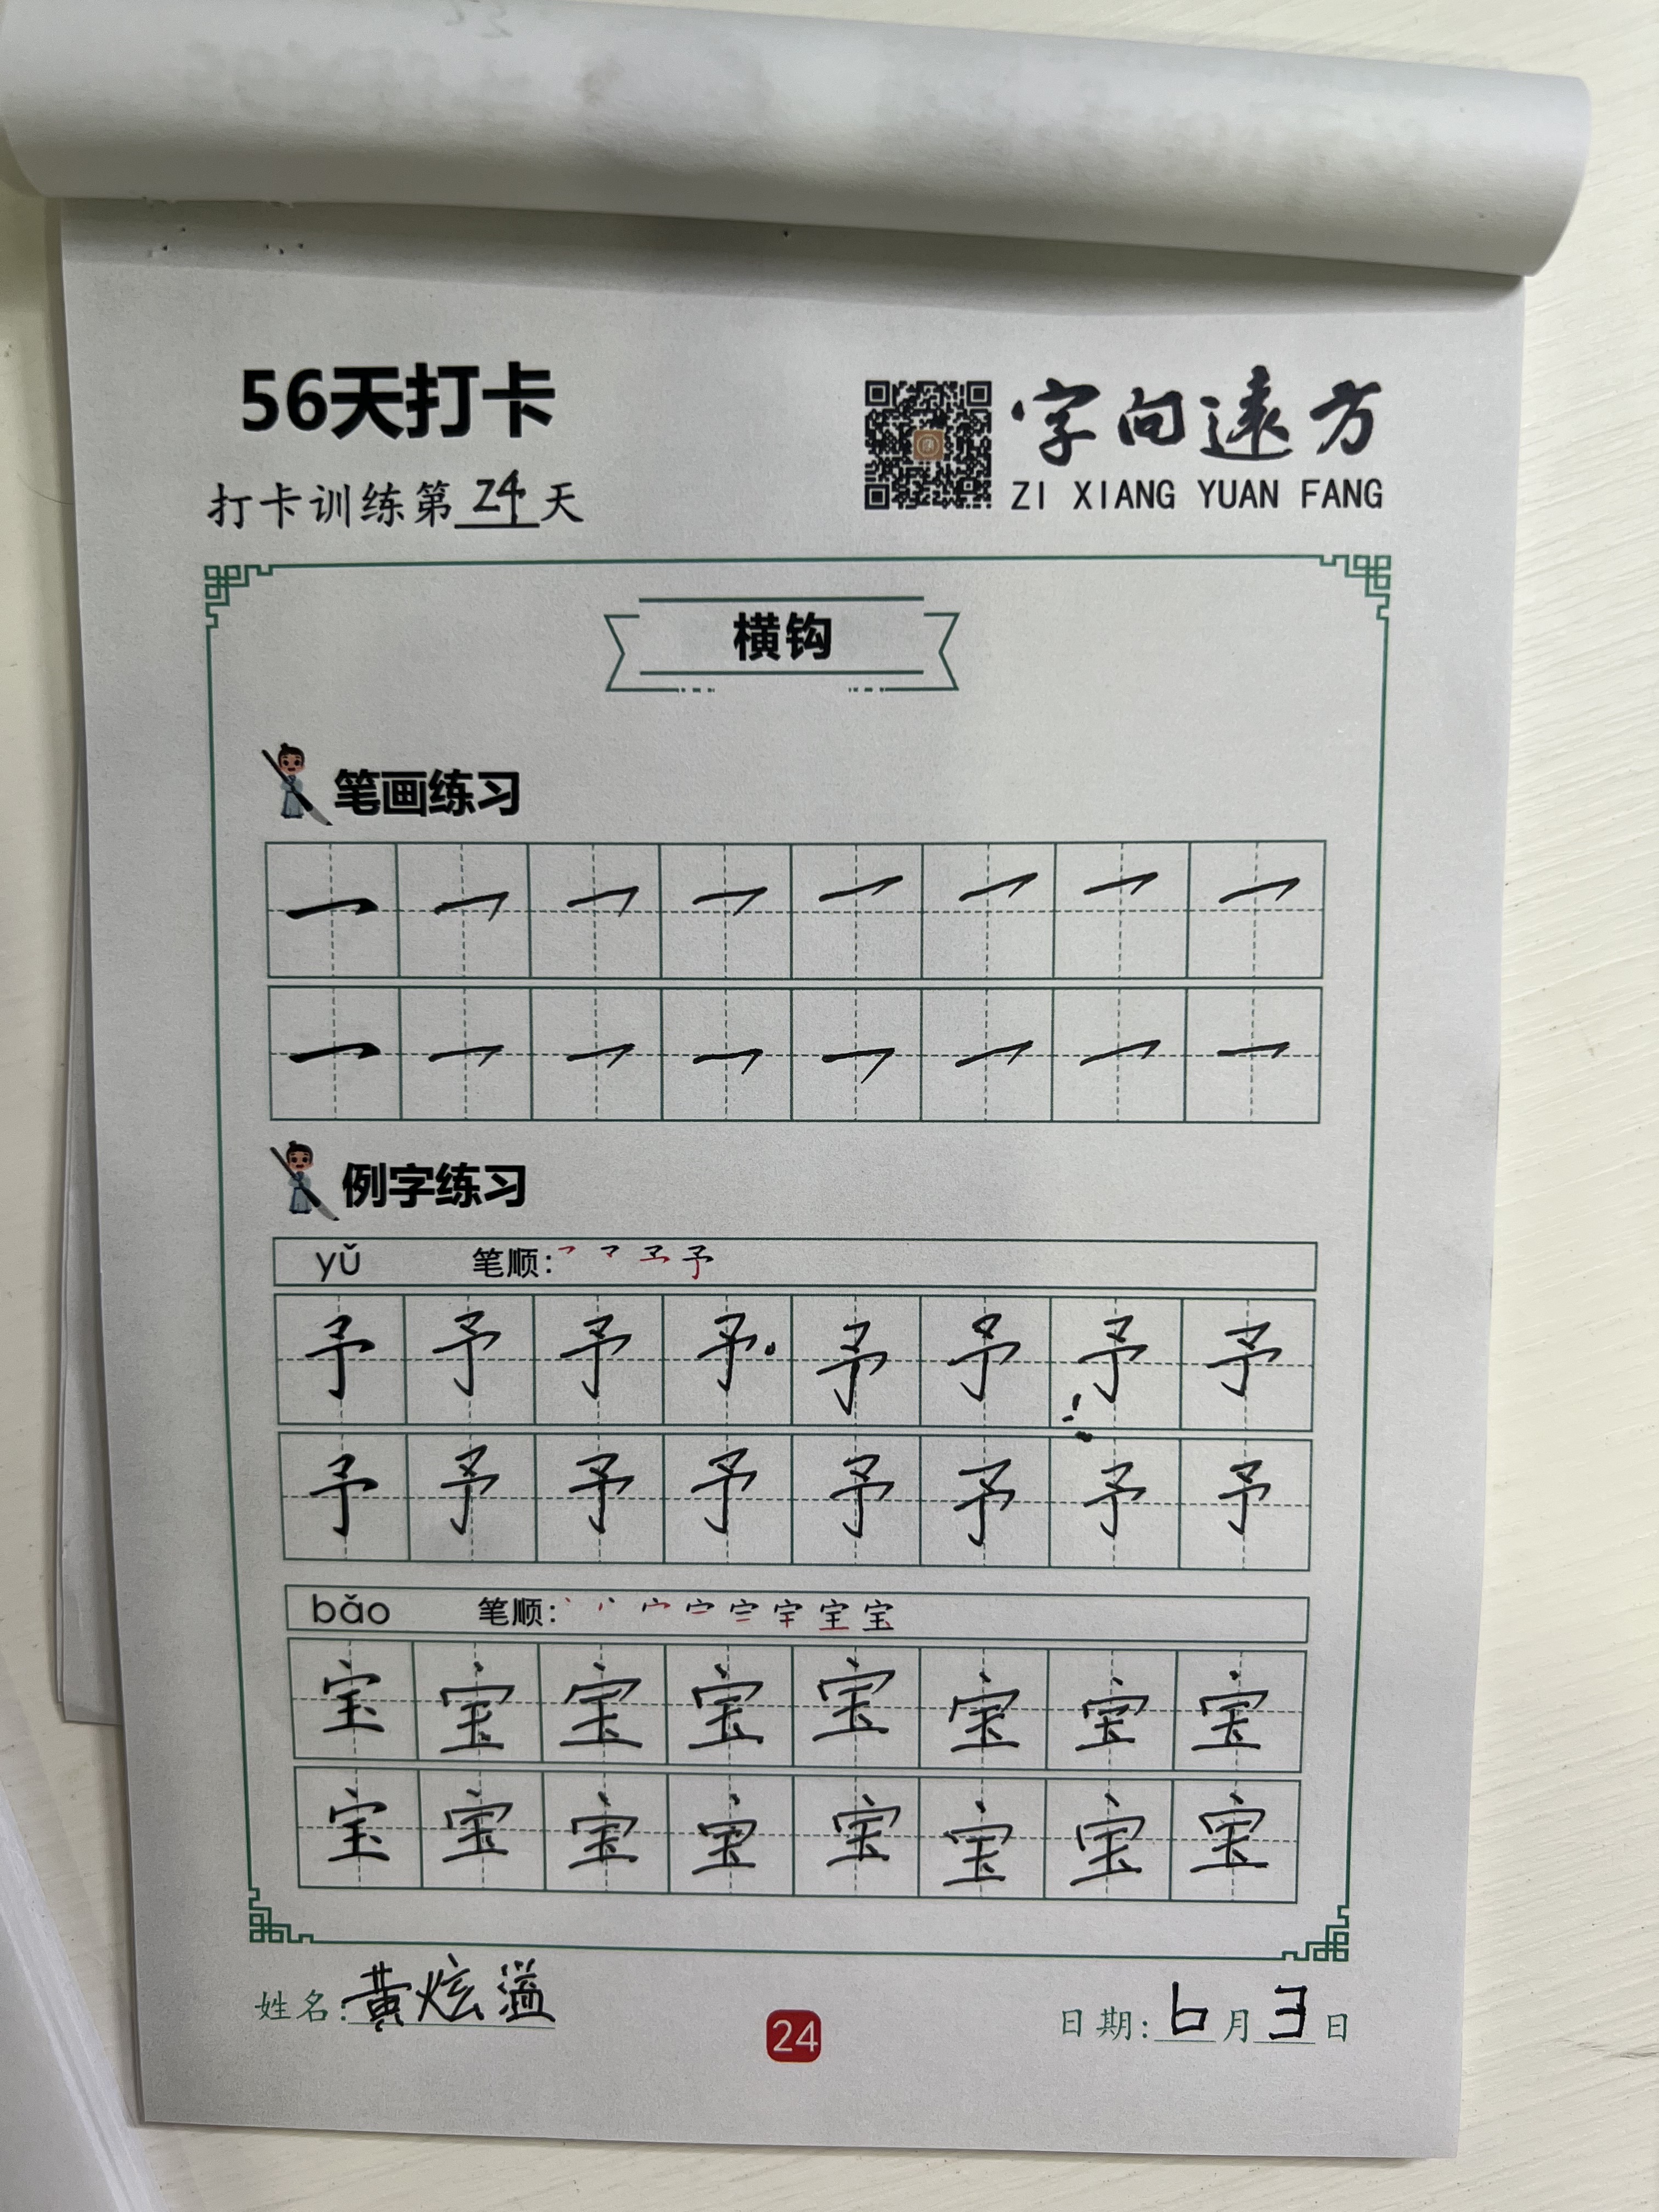 56天打卡
字向遠方
打卡训练第24天
ZI XIANG YUAN FANG
横钩
笔画练习
例字练习
yǔ 笔顺:
予 予 予 予 予 予 予 予
予 予 予 予 予 予 予 予
bǎo 笔顺:
宝 宝 宝 宝 宝 宝 宝 宝
宝 宝 宝 宝 宝 宝 宝 宝
姓名:黄炫溢
24
日期:6月3日